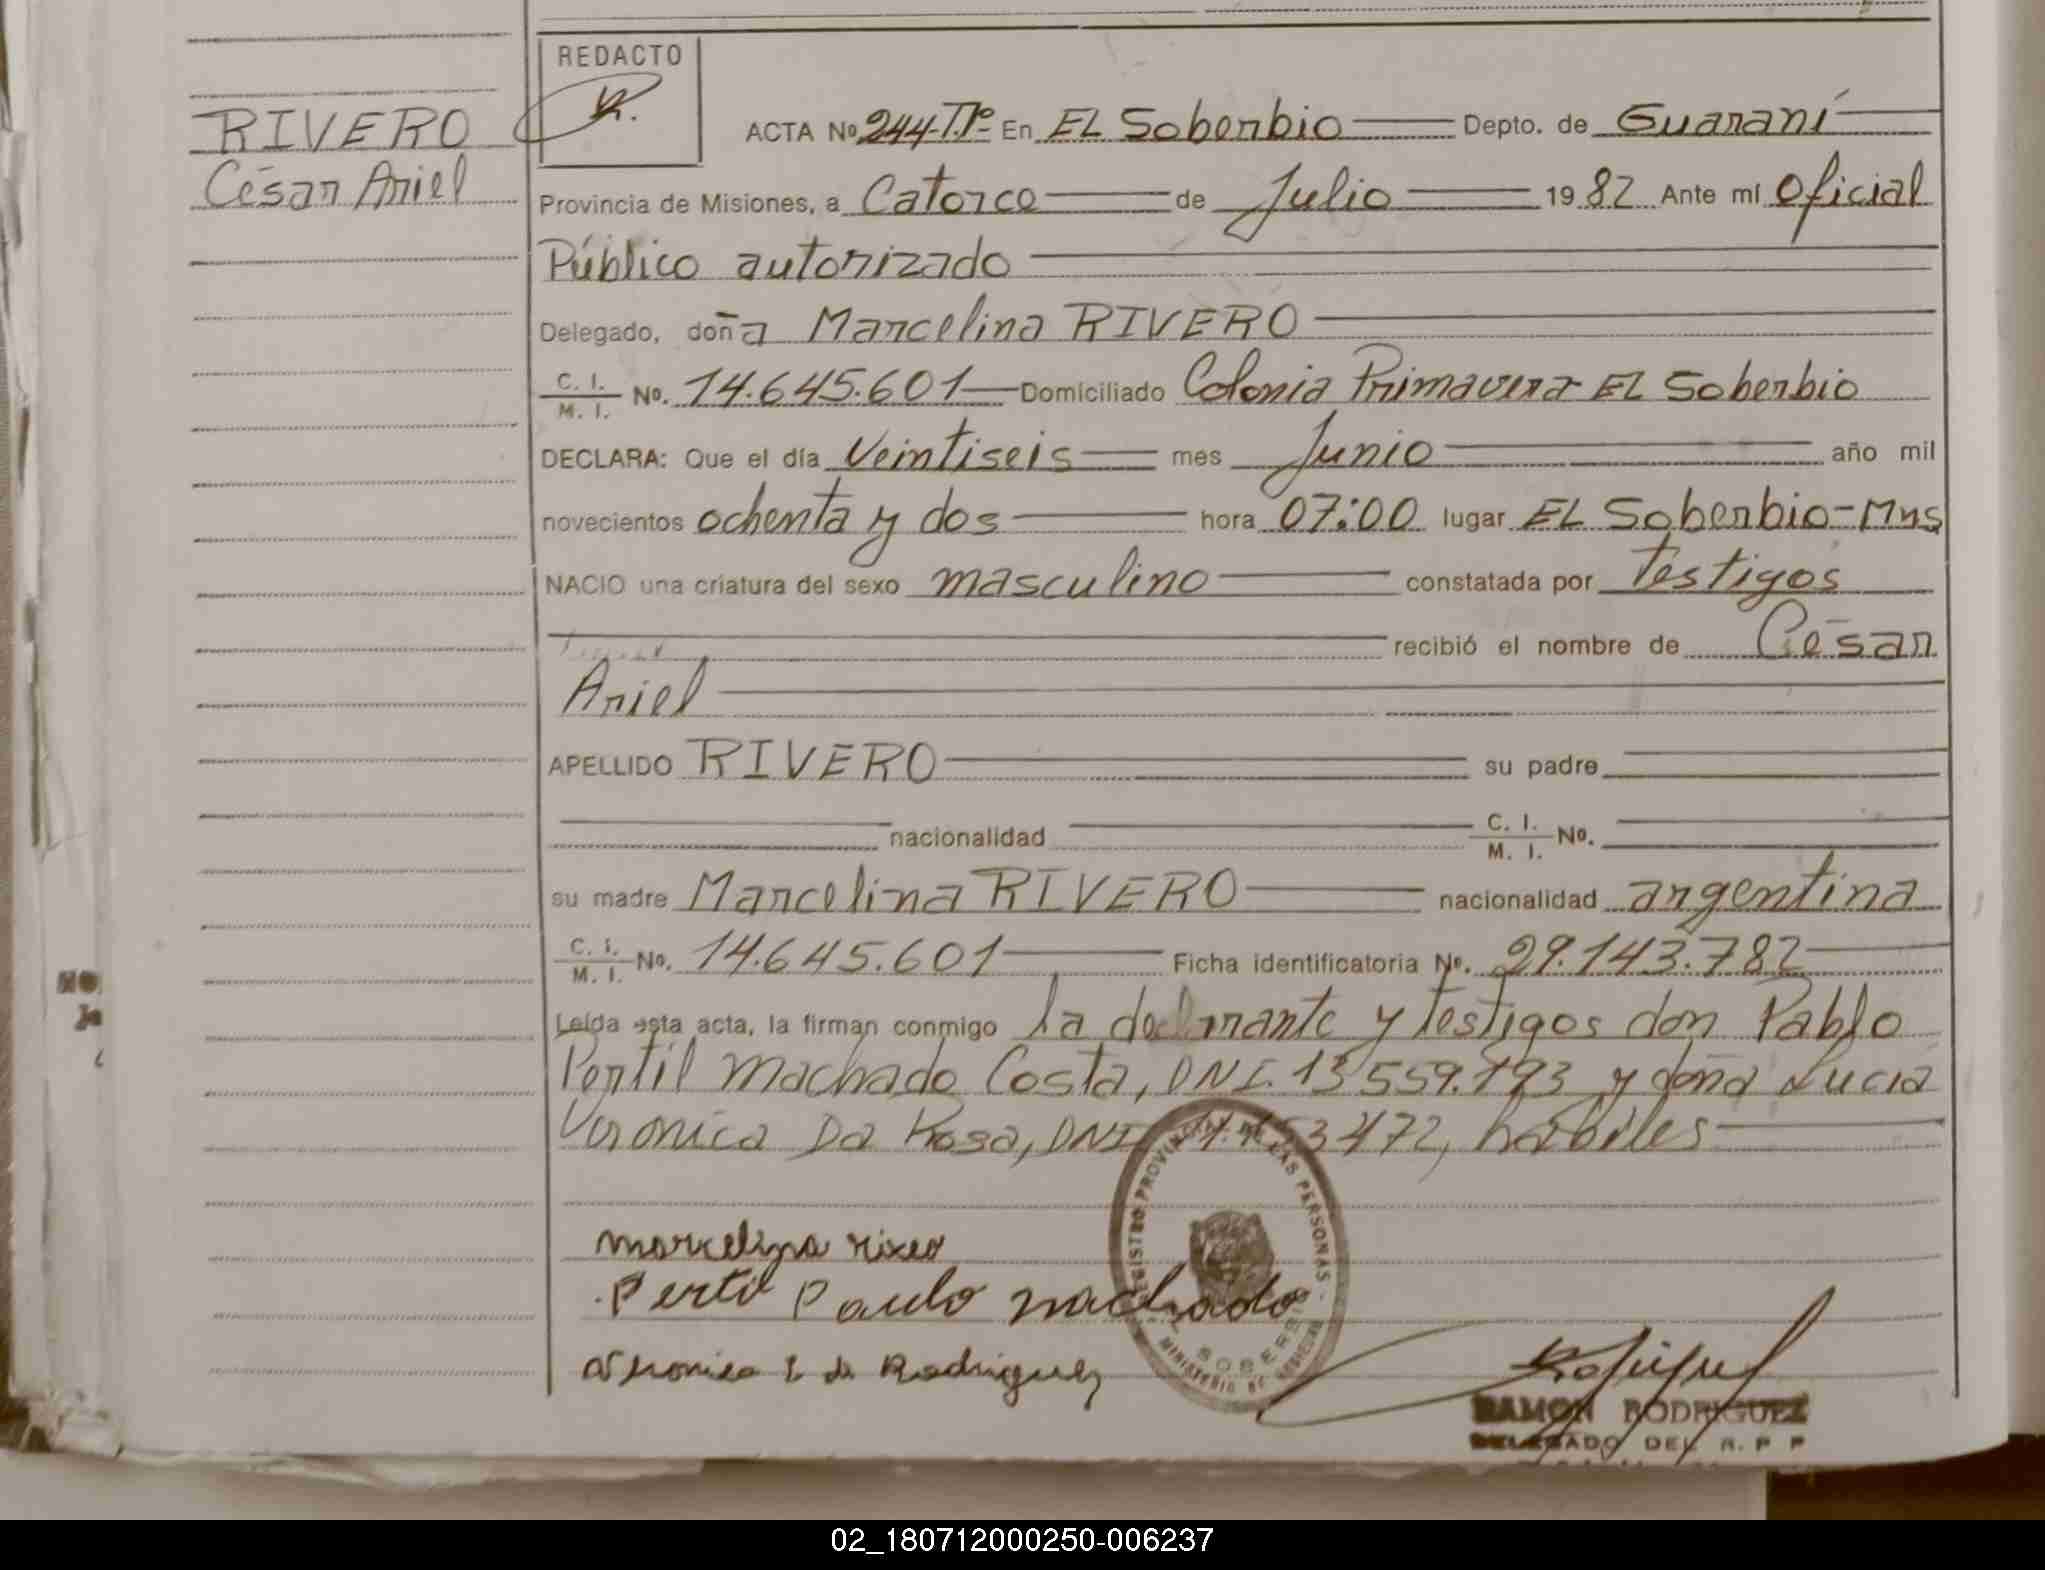 REDACTO
R.
RIVERO
César Ariel
ACTA No 244-Tº1º En EL Soberbio Depto. de Guaraní
Provincia de Misiones, a Catorce de Julio 1982 Ante mí Oficial
Público autorizado
Delegado, doña Marcelina RIVERO
C. I. / M. I. No. 14.645.601 Domiciliado Colonia Primavera EL Soberbio
DECLARA: Que el día Veintiseis mes Junio año mil
novecientos ochenta y dos hora 07:00 lugar EL Soberbio-Mns
NACIO una criatura del sexo masculino constatada por testigos
recibió el nombre de César
Ariel
APELLIDO RIVERO su padre
nacionalidad C. I. / M. I. No.
su madre Marcelina RIVERO nacionalidad argentina
C. I. / M. I. No. 14.645.601 Ficha identificatoria No. 29.143.782
Leída esta acta, la firman conmigo la declarante y testigos don Pablo
Pertil Machado Costa, DNI. 13559.793 y doña Lucia
Veronica Da Rosa, DNI 3472, hábiles
REGISTRO PROVINCIAL DE LAS PERSONAS
SOBERBIO
MINISTERIO DE
marcelina rivero
Pertil Paulo machado
Veronica L da Rodriguez
RAMON RODRIGUEZ
DELEGADO DEL R. P. P
02_180712000250-006237